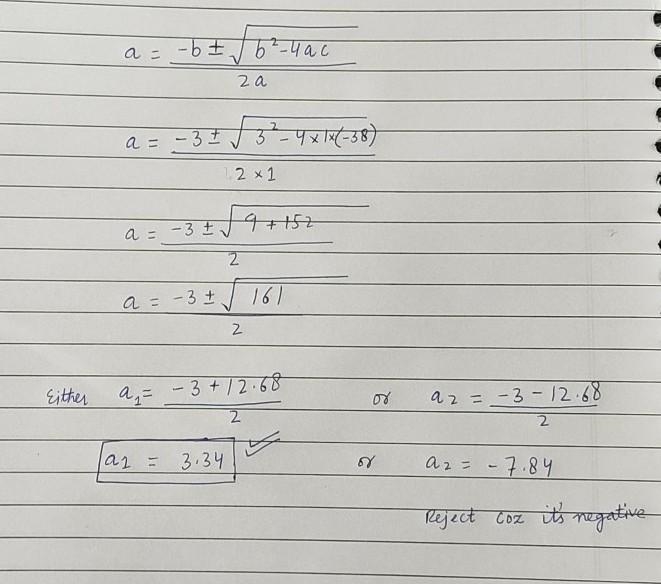 a = -b ± √b²-4ac / 2a
a = -3 ± √3²-4×1×(-38) / 2×1
a = -3 ± √9+152 / 2
a = -3 ± √161 / 2
Either a₁ = -3+12.68 / 2 or a₂ = -3-12.68 / 2
a₁ = 3.34 ✓ or a₂ = -7.84
Reject coz it's negative